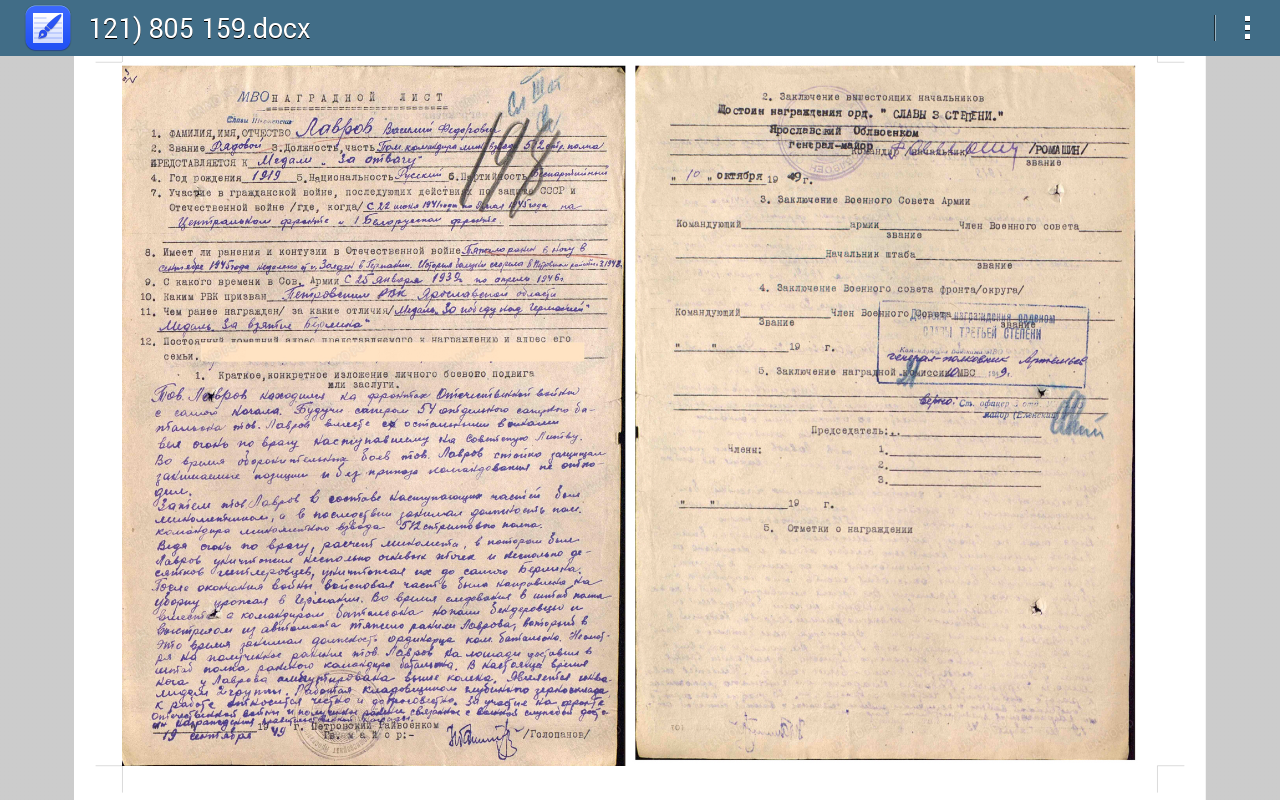 121) 805 159.docx
МВО НАГРАДНОЙ ЛИСТ
Славы III степени
1. ФАМИЛИЯ, ИМЯ, ОТЧЕСТВО Лавров Василий Федорович
2. Звание Рядовой 3. Должность, часть Пом. командира мин. взвода 512 стр. полка
ПРЕДСТАВЛЯЕТСЯ К Медали "За отвагу"
4. Год рождения 1919 5. Национальность Русский 6. Партийность Беспартийный
7. Участие в гражданской войне, последующих действиях по защите СССР и
Отечественной войне /где, когда/ С 22 июня 1941 года по 9 мая 1945 года на
Центральном фронте и 1 Белорусском фронте.
8. Имеет ли ранения и контузии в Отечественной войне Тяжело ранен в ногу в
сентябре 1945 года
9. С какого времени в Сов. Армии С 25 января 1939 по апрель 1946 г.
10. Каким РВК призван Петровским РВК Ярославской области
11. Чем ранее награжден/ за какие отличия/ Медаль "За победу над Германией"
Медаль "За взятие Берлина"
12. Постоянный домашний адрес представляемого к награждению и адрес его
семьи.
1. Краткое, конкретное изложение личного боевого подвига
или заслуги.
Тов. Лавров находился на фронтах Отечественной войны
с самого начала. Будучи сапером 54 отдельного саперного ба-
тальона тов. Лавров вместе с остальными воинами
вел огонь по врагу наступавшему на Советскую Литву.
Во время оборонительных боев тов. Лавров стойко защищал
занимаемые позиции и без приказа командования не отхо-
дил.
Затем тов. Лавров в составе наступающих частей был
минометчиком, а в последствии занимал должность пом.
командира минометного взвода 512 стрелкового полка.
Ведя огонь по врагу, расчет миномета, в котором был
Лавров уничтожил несколько огневых точек и несколько де-
сятков гитлеровцев, уничтожая их до самого Берлина.
После окончания войны войсковая часть была направлена на
уборку урожая в Германии. Во время следования в штаб полка
вместе с командиром батальона напали бендеровцы и
выстрелом из автомата тяжело ранили Лаврова, который в
это время занимал должность ординарца ком. батальона. Несмот-
ря на полученное ранение тов. Лавров на лошади доставил в
штаб полка раненого командира батальона. В настоящее время
нога у Лаврова ампутирована выше колена. Является инва-
лидом 2 группы. Работая кладовщиком глубинного зерносклада
к работе относится честно и добросовестно. За участие на фронте
Отечественной войны и полученное ранение связанное с
награждения правительственной награды.
19 сентября 1949 г. Петровский Райвоенком
Гв. майор:- /Голопанов/
198
2. Заключение вышестоящих начальников
Достоин награждения орд. "СЛАВЫ 3 СТЕПЕНИ."
Ярославский Облвоенком
генерал-майор /РОМАШИН/
Командир начальник
звание
"10" октября 1949 г.
3. Заключение Военного Совета Армии
Командующий армии Член Военного совета
звание
Начальник штаба
звание
4. Заключение Военного совета фронта/округа/
Командующий Член Военного Совета
Звание звание
" " 19 г.
Достоин награждения орденом
СЛАВЫ ТРЕТЬЕЙ СТЕПЕНИ
Командующий войсками МВО
генерал-полковник Артемьев
5. Заключение наградной комиссии МВС
Верно: Ст. офицер
майор
Председатель:
Члены: 1.
2.
3.
" " 19 г.
5. Отметки о награждении